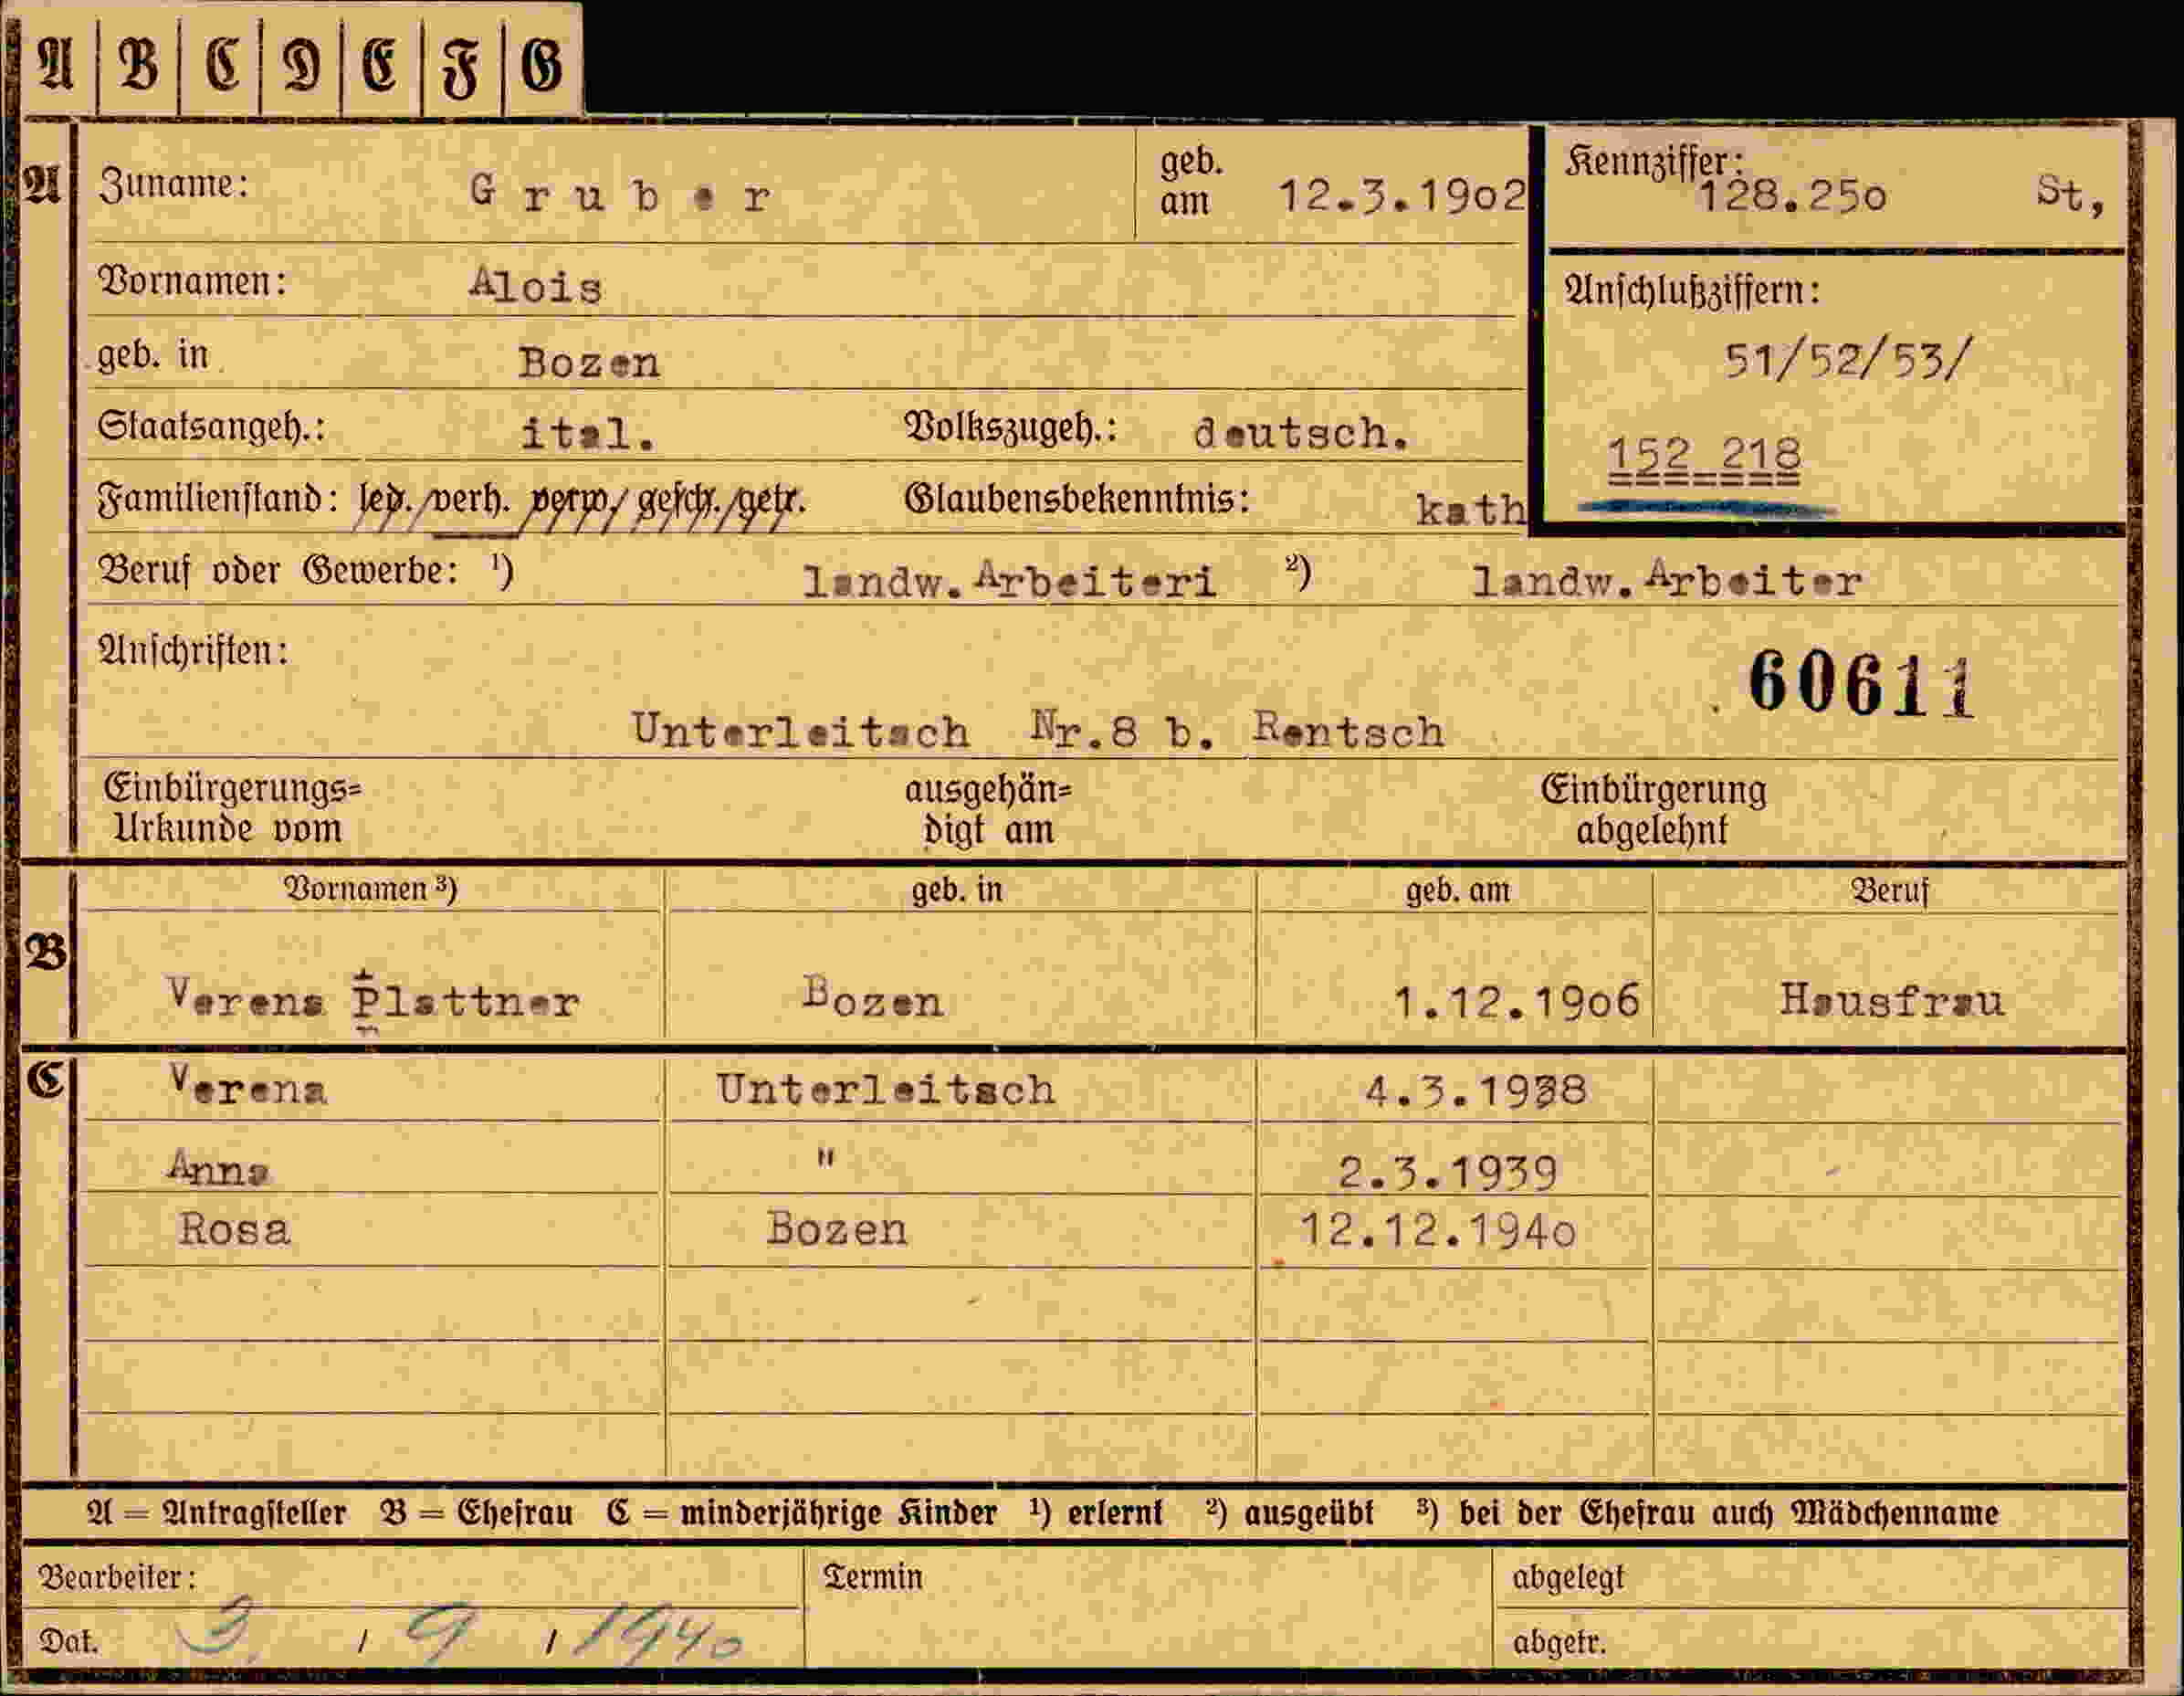 A B C D E F G
A Zuname: Gruber geb. am 12.3.1902 Kennziffer: 128.250 St,
Vornamen: Alois Anschlußziffern:
geb. in Bozen 51/52/53/
Staatsangeh.: ital. Volkszugeh.: deutsch. 152 218
Familienstand: led./verh. verw./gesch./getr. Glaubensbekenntnis: kath
Beruf oder Gewerbe: ¹) landw. Arbeiteri ²) landw. Arbeiter
Anschriften: 60611
Unterleitach Nr.8 b. Rentsch
Einbürgerungs= ausgehän= Einbürgerung
Urkunde vom digt am abgelehnt
Vornamen ³) geb. in geb. am Beruf
B Verena Plattner Bozen 1.12.1906 Hausfrau
C Verena Unterleitach 4.3.1938
Anna " 2.3.1939
Rosa Bozen 12.12.1940
A = Antragsteller B = Ehefrau C = minderjährige Kinder ¹) erlernt ²) ausgeübt ³) bei der Ehefrau auch Mädchenname
Bearbeiter: Termin abgelegt
Dat. 3. / 9 / 1940 abgetr.